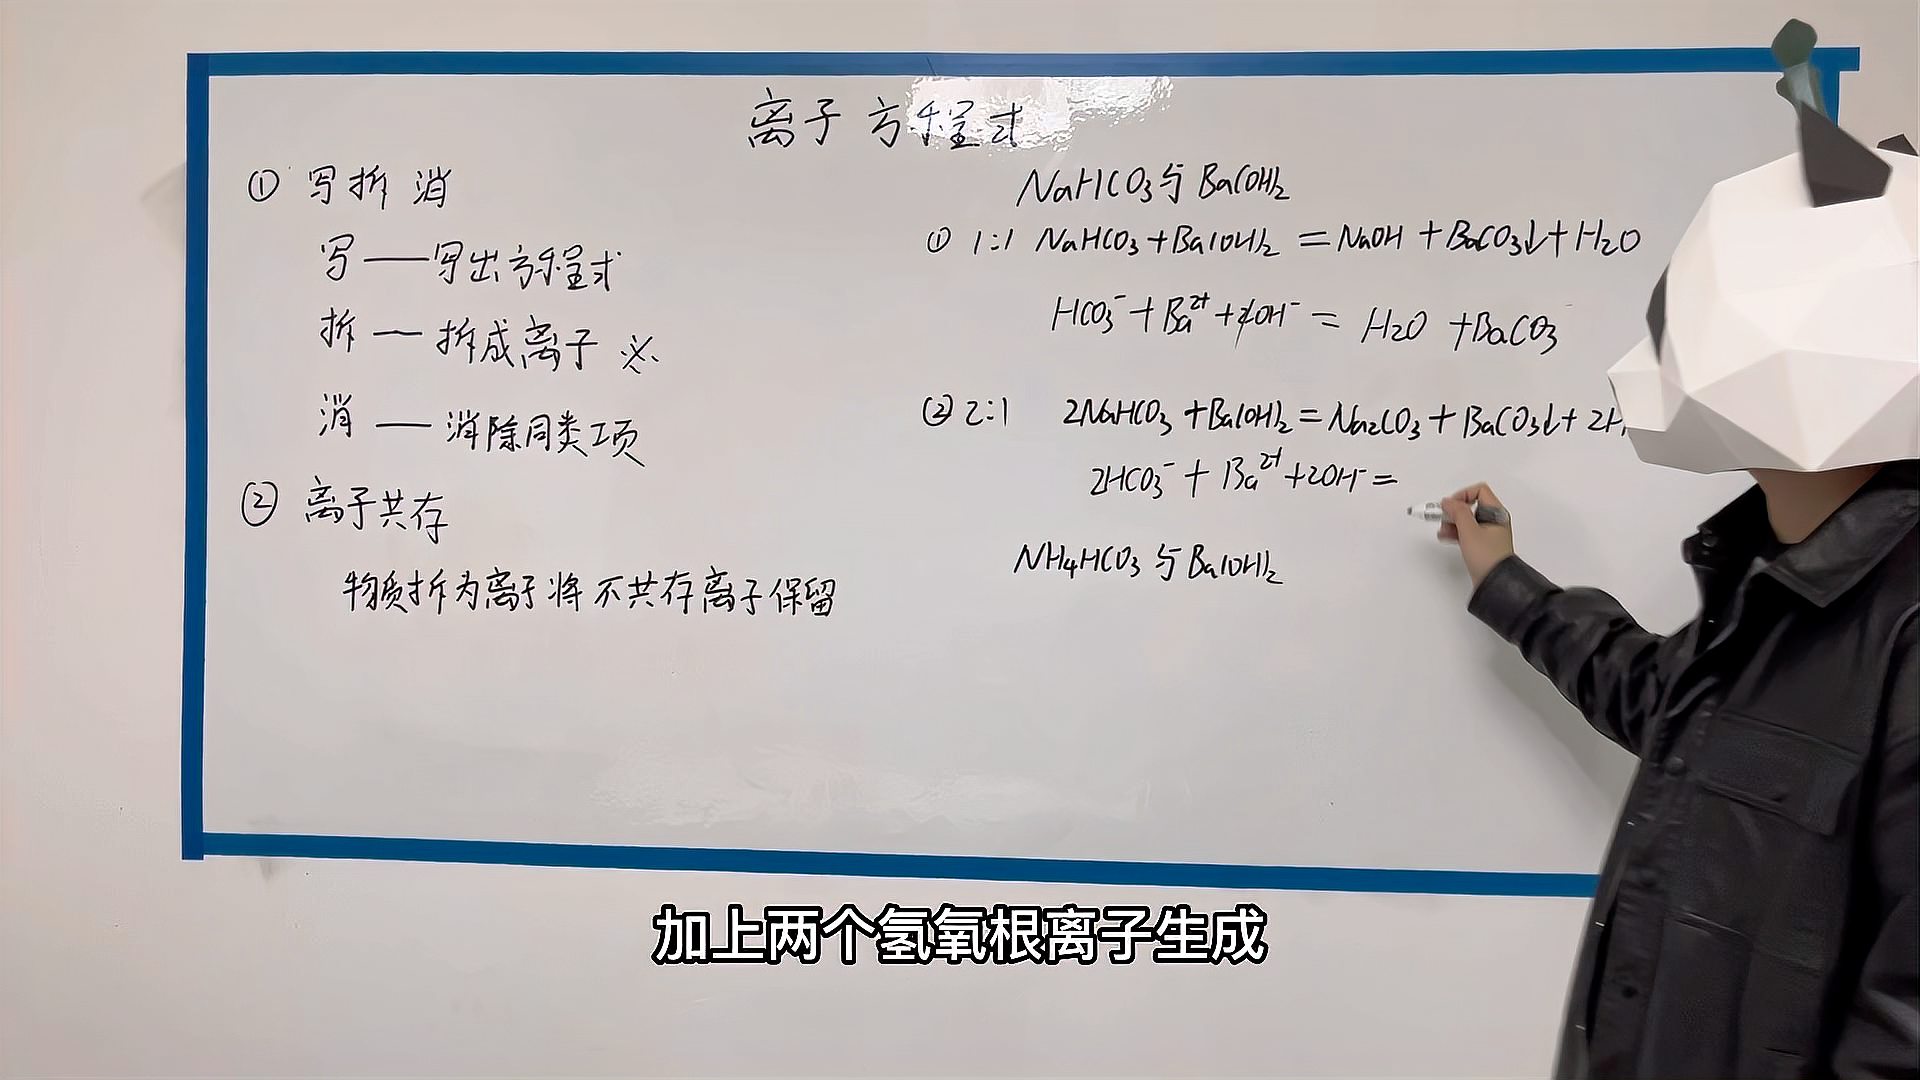 离子方程式
① 写拆消
写——写出方程式
拆——拆成离子 ※
消——消除同类项
② 离子共存
物质拆为离子将不共存离子保留
NaHCO₃与Ba(OH)₂
① 1:1 NaHCO₃+Ba(OH)₂=NaOH+BaCO₃↓+H₂O
HCO₃⁻+Ba²⁺+OH⁻=H₂O+BaCO₃
② 2:1 2NaHCO₃+Ba(OH)₂=Na₂CO₃+BaCO₃↓+2H
2HCO₃⁻+Ba²⁺+2OH⁻=
NH₄HCO₃与Ba(OH)₂
加上两个氢氧根离子生成